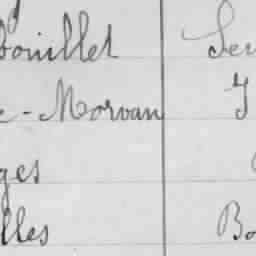 bouillet Ser
e-Morvan Y
ges
lles Bo